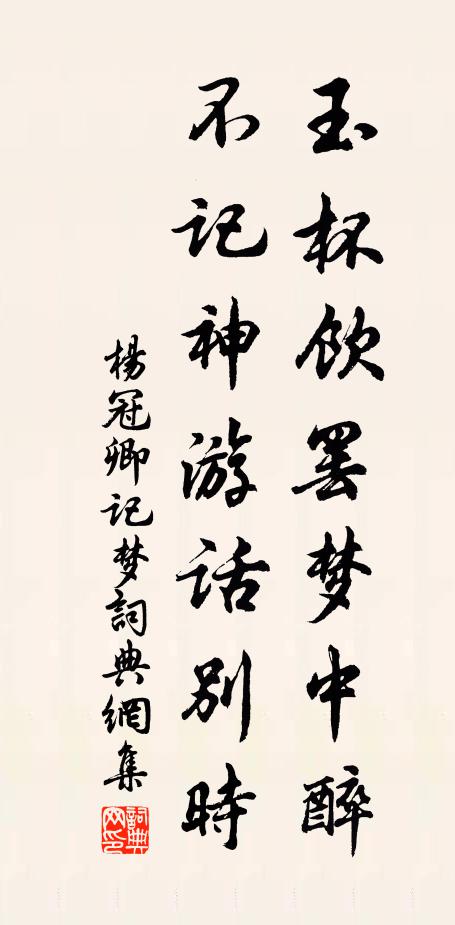 玉杯饮罢梦中醉
不记神游话别時
楊冠卿记梦詞典網集
詞典网印